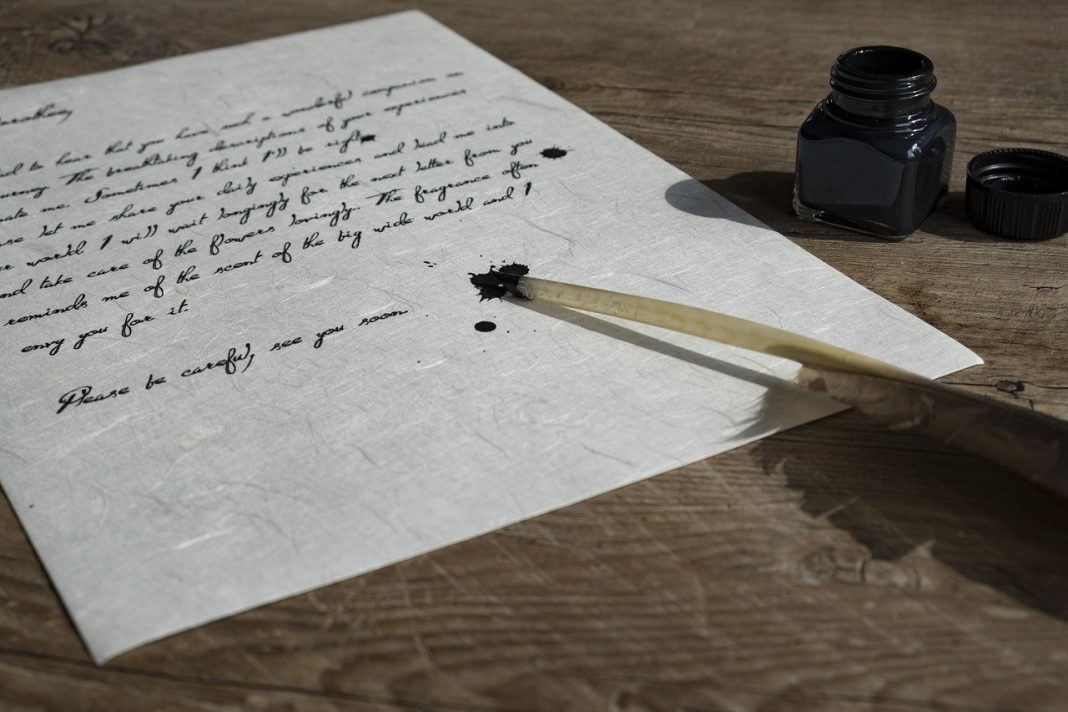 to hear that you have a wonderful companion on
The breathtaking descriptions of your experiences
me. Sometimes I think I'll be right
let me share your daily experiences and lead me into
world I will wait longingly for the next letter from you
take care of the flowers lovingly. The fragrance often
reminds me of the scent of the big wide world and I
envy you for it.
Please be careful, see you soon